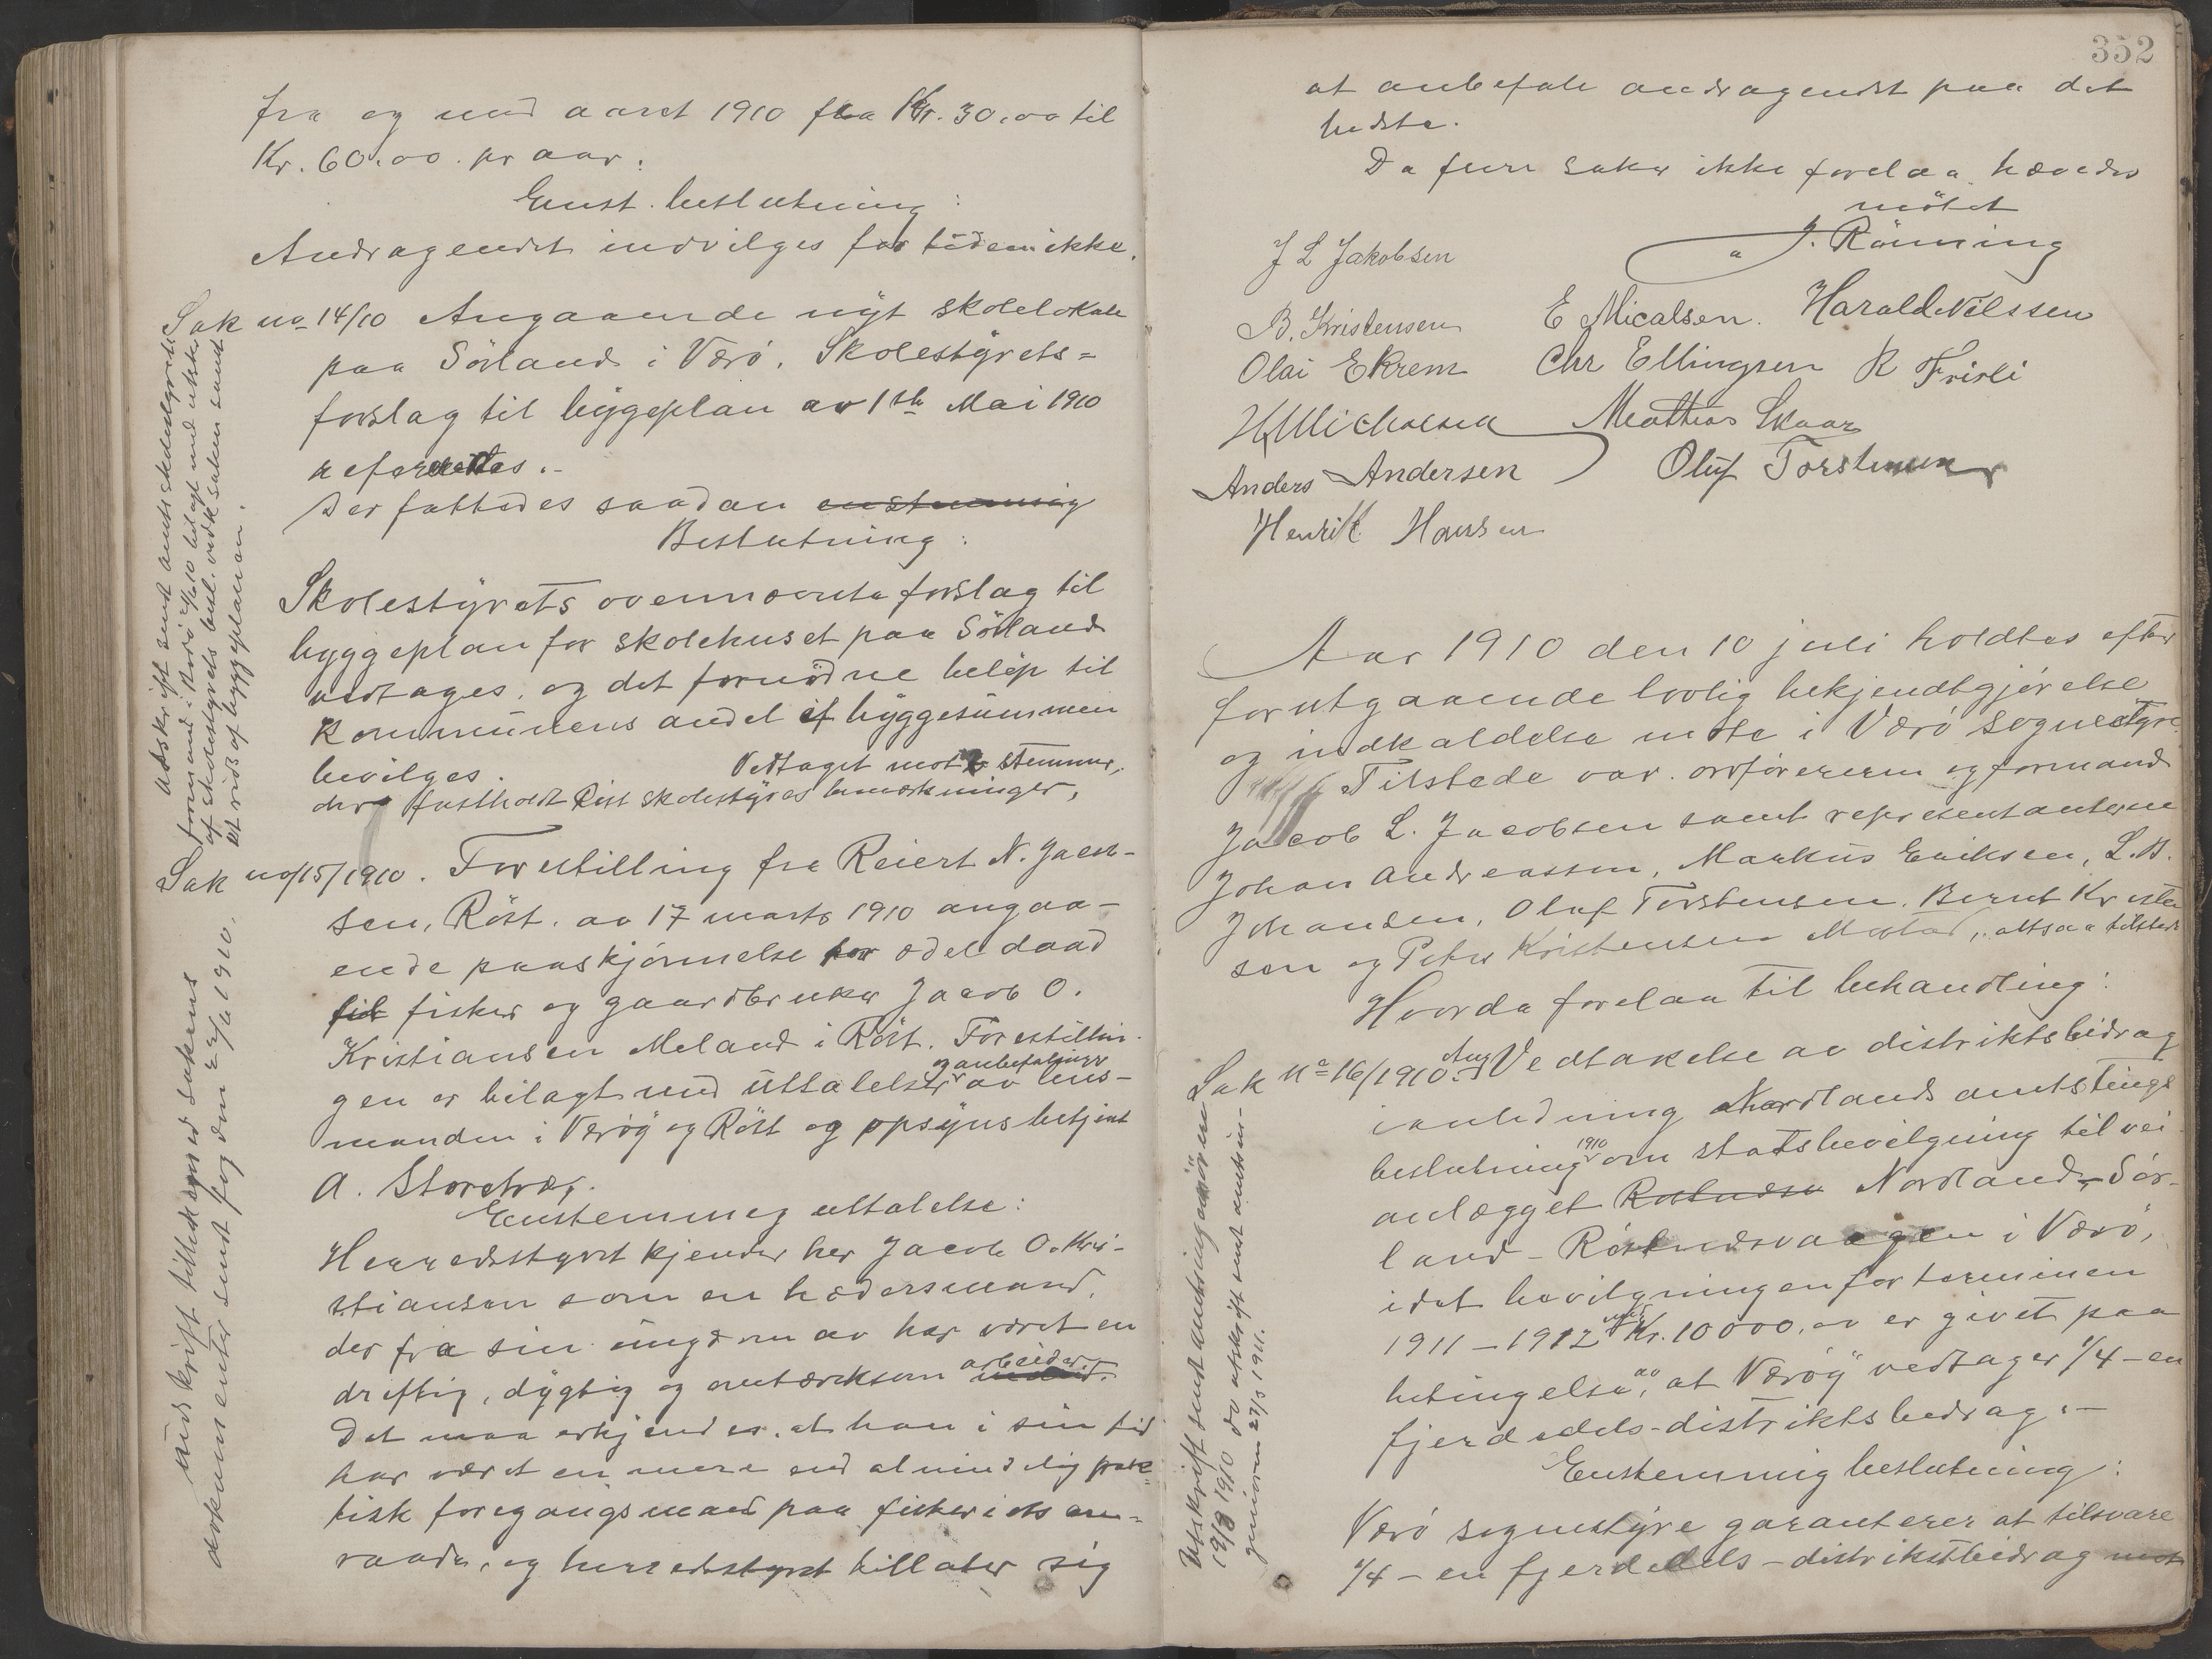 fra og med aaret 1910 fra Kr. 30.00 til
Kr. 60.00. pr aar.
Enst. beslutning:
Andragendet indvilges for tiden ikke.
Sak no 14/10 Angaaende nyt skolelokale
paa Sörland i Værö. Skolestyrets-
forslag til byggeplan av 1ste Mai 1910
refereredes.-
Der fattedes saadan enstemmig
Beslutning:
Skolestyrets ovennævnte forslag til
byggeplan for skolehuset paa Sörland
vedtages, og det fornödne belöp til
Kommunens andel af byggesummen
bevilges.
Vedtaget mot 2 stemmer,
der fastholdt Röst skolestyres bemærkninger,
Utskrift sendt amtsskolestyrets
formand i Bodö /6 10 bilagt med utskr.
af skolestyrets besl. vedk saken samt
et rids af byggeplanen.
Sak no 15/1910. Forestilling fra Reiert N. Jacob-
sen, Röst. av 17 marts 1910 angaa-
ende paaskjönnelse for ædel daad
til fisker og gaardbruker Jacob O.
Kristiansen Meland i Röst. Forestillin-
gen er bilagt med uttalelser og anbefalinger av lens-
manden i Væröy og Röst og opsynsbetjent
A. Storetvæs.
Enstemmig uttalelse:
Herredsstyret kjender her Jacob O. Kri-
stiansen som en hædersmand,
der fra sin ungdom av har været en
driftig, dygtig og omtænksom arbeider.
Det maa erkjendes, at han i sin tid
har været en mere end almindelig prak-
tisk foregangsmand paa fiskeriets om-
raade, og herredsstyret tillater sig
Utskrift tillikemed sakens
dokumenter sendt fogden 22/6 1910.
352
at anbefale andragendet paa det
bedste.
Da flere saker ikke forelaa hævedes
mötet
J. Rönning
J L Jakobsen
B. Kristensen E Micalsen. Harald Nilssen
Olai Ekrem Chr Ellingsen R Fristi
H Michalsen Mathias Skaar
Anders Andersen Oluf Torstensen
Henrik Hansen
Aar 1910 den 10 juli holdtes efter
forutgaaende lovlig bekjendtgjörelse
og indkaldelse möte i Værö sognestyre.
Tilstede var. ordföreren og formand
Jacob L. Jacobsen samt representanterne
Johan Andreassen, Markus Eriksen, L. B.
Johansen, Oluf Torstensen. Bernt Kristen-
sen og Peter Kristensen Mostad, altsaa tilstede
Hvorda forelaa til behandling:
Sak no 16/1910. Ang Vedtakelse av distriktsbidrag
i anledning Nordlands amtstings
beslutning 1910 om statsbevilgning til vei-
anlægget Røstnæs Nordland-Sör-
land-Röstnæsvaagen i Værö,
idet bevilgningen for terminen
1911-1912 Kr. 10000.00 er givet paa
betingelse av, at "Væröy" vedtager 1/4-en
fjerdedels-distriktsbidrag.-
Enstemmig beslutning:
Værö sognestyre garanterer at tilsvare
1/4-en fjerdedels-distriktsbidrag mot
Utskrift sendt amtsingeniören
19/8 1910 do utskrift sendt amtsin-
geniören 27/5 1911.